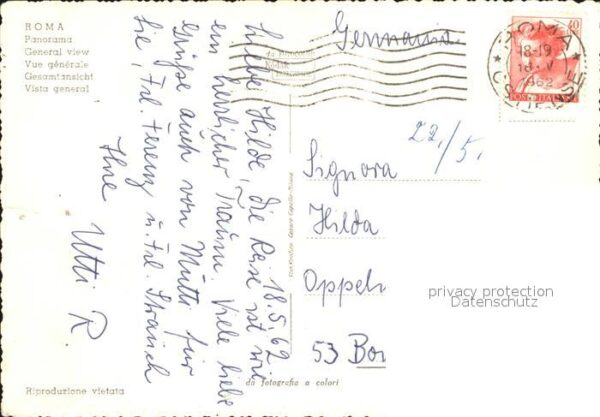 ROMA
Panorama
General view
Vue générale
Gesamtansicht
Vista general
Germania
ROMA
18-19
1962
40
POSTE ITALIANE
22./5.
18.5.62
Liebe Hilde, die Reise ist wie
ein herrlicher Traum. Viele liebe
Grüße auch von Mutti für
Sie, Frl. Ferenz u. Frl. Strauch
Ihre
Utti R.
Signora
Hilda
Oppeln
53 Bon
privacy protection
Datenschutz
da fotografia a colori
Riproduzione vietata